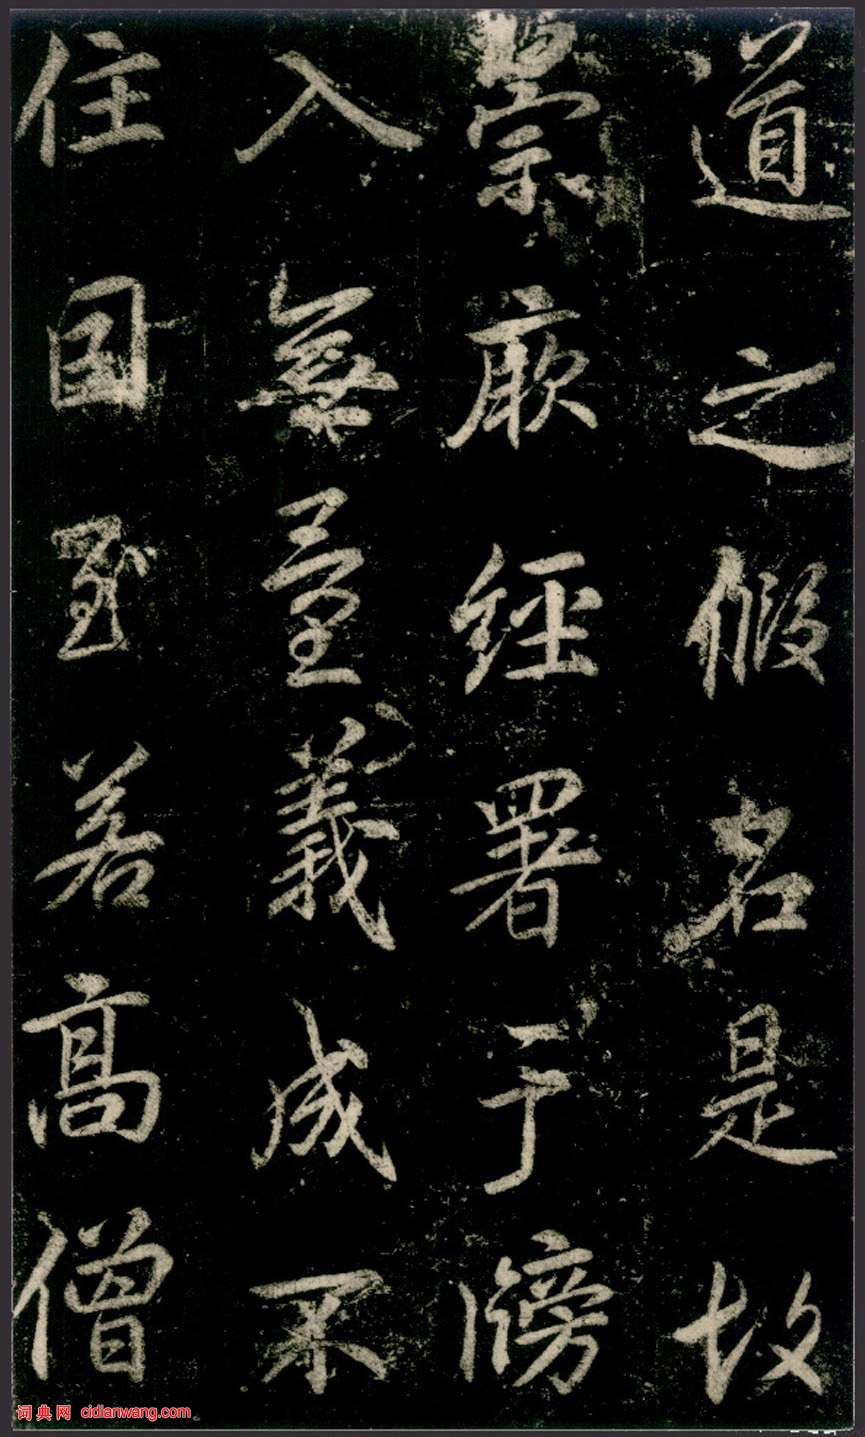 道之假名是故
崇厥經署于牓
入無量義成不
住因至若高僧
词典网 cidianwang.com